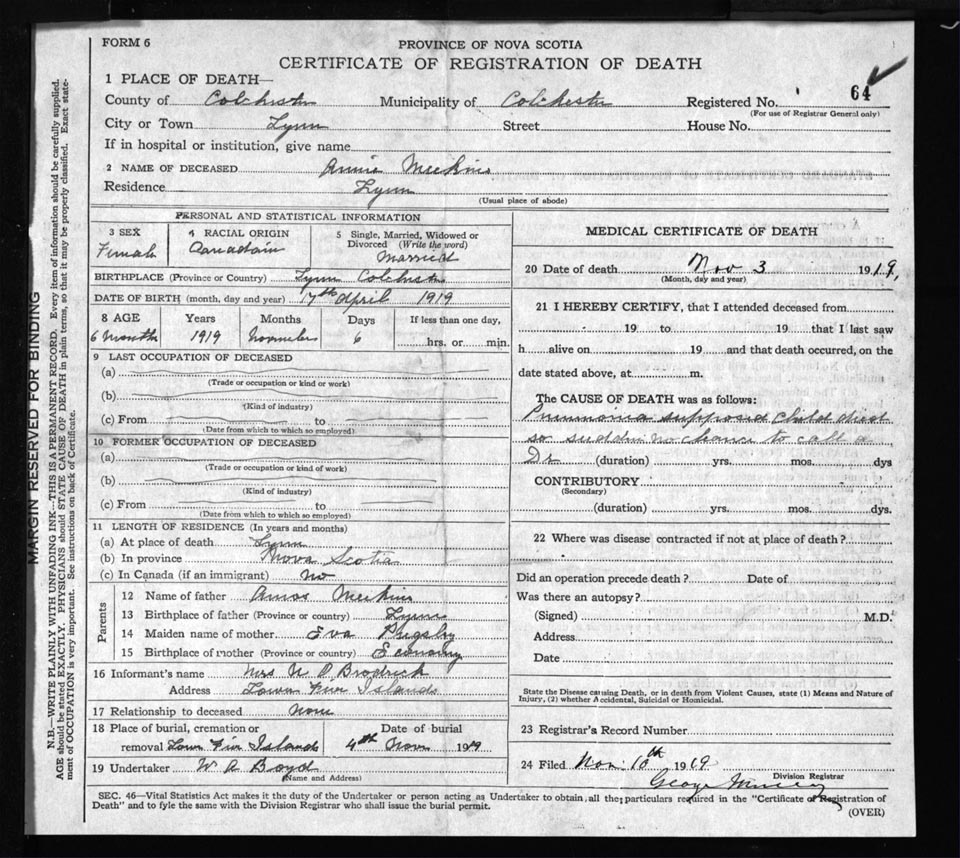 FORM 6
PROVINCE OF NOVA SCOTIA
CERTIFICATE OF REGISTRATION OF DEATH
1 PLACE OF DEATH—
County of Colchester Municipality of Colchester Registered No. 64
(For use of Registrar General only)
City or Town Lynn Street House No.
If in hospital or institution, give name
2 NAME OF DECEASED Annie Meekins
Residence Lynn
(Usual place of abode)
PERSONAL AND STATISTICAL INFORMATION
3 SEX Female
4 RACIAL ORIGIN Canadain
5 Single, Married, Widowed or Divorced (Write the word) Married
BIRTHPLACE (Province or Country) Lynn Colchester
DATE OF BIRTH (month, day and year) 17th April 1919
8 AGE Years Months Days If less than one day,
6 months 1919 6 hrs. or min.
9 LAST OCCUPATION OF DECEASED
(a)
(Trade or occupation or kind or work)
(b)
(Kind of industry)
(c) From to
(Date from which to which so employed)
10 FORMER OCCUPATION OF DECEASED
(a)
(Trade or occupation or kind or work)
(b)
(Kind of industry)
(c) From to
(Date from which to which so employed)
11 LENGTH OF RESIDENCE (In years and months)
(a) At place of death Lynn
(b) In province Nova Scotia
(c) In Canada (if an immigrant) No
Parents
12 Name of father Amos Meekins
13 Birthplace of father (Province or country) Lynn
14 Maiden name of mother Eva Pugsley
15 Birthplace of mother (Province or country) Economy
16 Informant's name Mrs Brodrick
Address Lower Five Islands
17 Relationship to deceased None
18 Place of burial, cremation or Date of burial
removal Lower Five Islands 4th Nov 1919
19 Undertaker W R Boyd
(Name and Address)
MEDICAL CERTIFICATE OF DEATH
20 Date of death Nov 3 1919
(Month, day and year)
21 I HEREBY CERTIFY, that I attended deceased from
19 to 19 that I last saw
h alive on 19 and that death occurred, on the
date stated above, at m.
The CAUSE OF DEATH was as follows:
Pnumonia supposed child died
so sudden no chance to call a
Dr (duration) yrs. mos. dys
CONTRIBUTORY
(Secondary)
(duration) yrs. mos. dys.
22 Where was disease contracted if not at place of death?
Did an operation precede death? Date of
Was there an autopsy?
(Signed) M.D.
Address
Date
State the Disease causing Death, or in death from Violent Causes, state (1) Means and Nature of
Injury, (2) whether Accidental, Suicidal or Homicidal.
23 Registrar's Record Number
24 Filed Nov 10th 1919
George
Division Registrar
SEC. 46—Vital Statistics Act makes it the duty of the Undertaker or person acting as Undertaker to obtain, all the particulars required in the "Certificate of Registration of
Death" and to fyle the same with the Division Registrar who shall issue the burial permit.
(OVER)
MARGIN RESERVED FOR BINDING
N.B.—WRITE PLAINLY WITH UNFADING INK—THIS IS A PERMANENT RECORD. Every item of information should be carefully supplied.
AGE should be stated EXACTLY. PHYSICIANS should STATE CAUSE OF DEATH in plain terms, so that it may be properly classified. Exact state-
ment of OCCUPATION is very important. See instructions on back of Certificate.